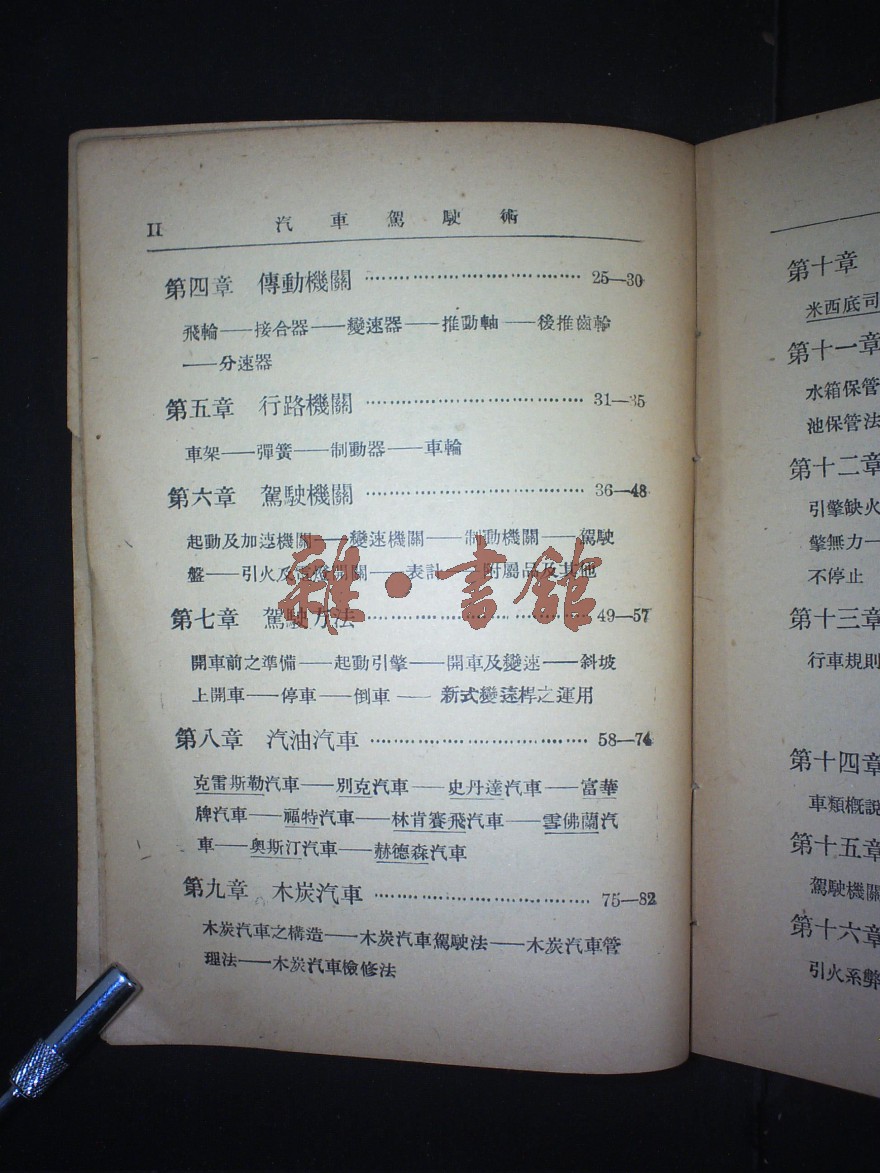 II 汽車駕駛術
第四章 傳動機關 …………………………………… 25—30
飛輪——接合器——變速器——推動軸——後推齒輪
——分速器
第五章 行路機關 …………………………………… 31—35
車架——彈簧——制動器——車輪
第六章 駕駛機關 …………………………………… 36—48
起動及加速機關——變速機關——制動機關——駕駛
盤——引火及電燈開關——表計——附屬品及其他
第七章 駕駛方法 …………………………………… 49—57
開車前之準備——起動引擎——開車及變速——斜坡
上開車——停車——倒車——新式變速桿之運用
第八章 汽油汽車 …………………………………… 58—74
克雷斯勒汽車——別克汽車——史丹達汽車——富華
牌汽車——福特汽車——林肯賽飛汽車——雲佛蘭汽
車——奧斯汀汽車——赫德森汽車
第九章 木炭汽車 …………………………………… 75—82
木炭汽車之構造——木炭汽車駕駛法——木炭汽車管
理法——木炭汽車檢修法
雜·書館
第十章
米西底司
第十一章
水箱保管
池保管法
第十二章
引擎缺火
擎無力—
不停止
第十三章
行車規則
第十四章
車類概說
第十五章
駕駛機關
第十六章
引火系弊